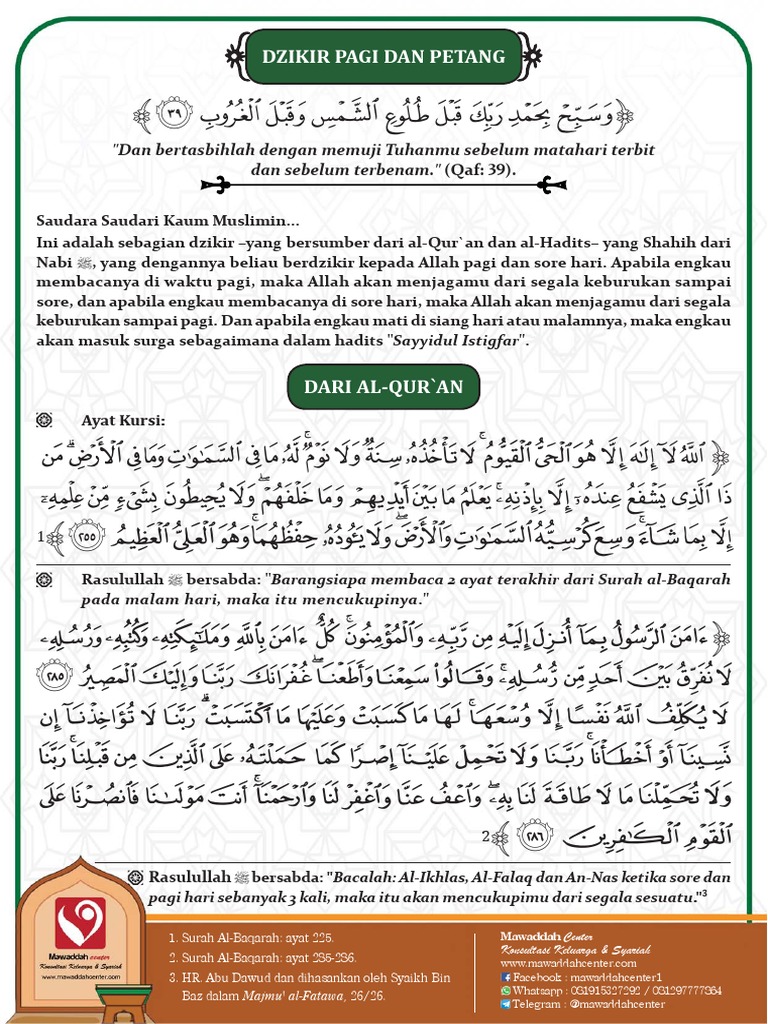 DZIKIR PAGI DAN PETANG
﴿وَسَبِّحْ بِحَمْدِ رَبِّكَ قَبْلَ طُلُوعِ ٱلشَّمْسِ وَقَبْلَ ٱلْغُرُوبِ ٣٩﴾
"Dan bertasbihlah dengan memuji Tuhanmu sebelum matahari terbit
dan sebelum terbenam." (Qaf: 39).
Saudara Saudari Kaum Muslimin...
Ini adalah sebagian dzikir –yang bersumber dari al-Qur`an dan al-Hadits– yang Shahih dari
Nabi ﷺ, yang dengannya beliau berdzikir kepada Allah pagi dan sore hari. Apabila engkau
membacanya di waktu pagi, maka Allah akan menjagamu dari segala keburukan sampai
sore, dan apabila engkau membacanya di sore hari, maka Allah akan menjagamu dari segala
keburukan sampai pagi. Dan apabila engkau mati di siang hari atau malamnya, maka engkau
akan masuk surga sebagaimana dalam hadits "Sayyidul Istigfar".
DARI AL-QUR`AN
Ayat Kursi:
﴿ٱللَّهُ لَآ إِلَٰهَ إِلَّا هُوَ ٱلْحَىُّ ٱلْقَيُّومُ ۚ لَا تَأْخُذُهُۥ سِنَةٌ وَلَا نَوْمٌ ۚ لَّهُۥ مَا فِى ٱلسَّمَٰوَٰتِ وَمَا فِى ٱلْأَرْضِ ۗ مَن
ذَا ٱلَّذِى يَشْفَعُ عِندَهُۥٓ إِلَّا بِإِذْنِهِۦ ۚ يَعْلَمُ مَا بَيْنَ أَيْدِيهِمْ وَمَا خَلْفَهُمْ ۖ وَلَا يُحِيطُونَ بِشَىْءٍ مِّنْ عِلْمِهِۦٓ
إِلَّا بِمَا شَآءَ ۚ وَسِعَ كُرْسِيُّهُ ٱلسَّمَٰوَٰتِ وَٱلْأَرْضَ ۖ وَلَا يَـُٔودُهُۥ حِفْظُهُمَا ۚ وَهُوَ ٱلْعَلِىُّ ٱلْعَظِيمُ ٢٥٥﴾ 1
Rasulullah ﷺ bersabda: "Barangsiapa membaca 2 ayat terakhir dari Surah al-Baqarah
pada malam hari, maka itu mencukupinya."
﴿ءَامَنَ ٱلرَّسُولُ بِمَآ أُنزِلَ إِلَيْهِ مِن رَّبِّهِۦ وَٱلْمُؤْمِنُونَ ۚ كُلٌّ ءَامَنَ بِٱللَّهِ وَمَلَٰٓئِكَتِهِۦ وَكُتُبِهِۦ وَرُسُلِهِۦ
لَا نُفَرِّقُ بَيْنَ أَحَدٍ مِّن رُّسُلِهِۦ ۚ وَقَالُوا۟ سَمِعْنَا وَأَطَعْنَا ۖ غُفْرَانَكَ رَبَّنَا وَإِلَيْكَ ٱلْمَصِيرُ ٢٨٥
لَا يُكَلِّفُ ٱللَّهُ نَفْسًا إِلَّا وُسْعَهَا ۚ لَهَا مَا كَسَبَتْ وَعَلَيْهَا مَا ٱكْتَسَبَتْ ۗ رَبَّنَا لَا تُؤَاخِذْنَآ إِن
نَّسِينَآ أَوْ أَخْطَأْنَا ۚ رَبَّنَا وَلَا تَحْمِلْ عَلَيْنَآ إِصْرًا كَمَا حَمَلْتَهُۥ عَلَى ٱلَّذِينَ مِن قَبْلِنَا ۚ رَبَّنَا
وَلَا تُحَمِّلْنَا مَا لَا طَاقَةَ لَنَا بِهِۦ ۖ وَٱعْفُ عَنَّا وَٱغْفِرْ لَنَا وَٱرْحَمْنَآ ۚ أَنتَ مَوْلَىٰنَا فَٱنصُرْنَا عَلَى
ٱلْقَوْمِ ٱلْكَٰفِرِينَ ٢٨٦﴾ 2
Rasulullah ﷺ bersabda: "Bacalah: Al-Ikhlas, Al-Falaq dan An-Nas ketika sore dan
pagi hari sebanyak 3 kali, maka itu akan mencukupimu dari segala sesuatu."3
Mawaddah center
Konsultasi Keluarga & Syariah
www.mawaddahcenter.com
1. Surah Al-Baqarah: ayat 225.
2. Surah Al-Baqarah: ayat 285-286.
3. HR. Abu Dawud dan dihasankan oleh Syaikh Bin
Baz dalam Majmu' al-Fatawa, 26/26.
Mawaddah Center
Konsultasi Keluarga & Syariah
www.mawaddahcenter.com
Facebook : mawaddahcenter1
Whatsapp : 081915327292 / 081297777864
Telegram : @mawaddahcenter